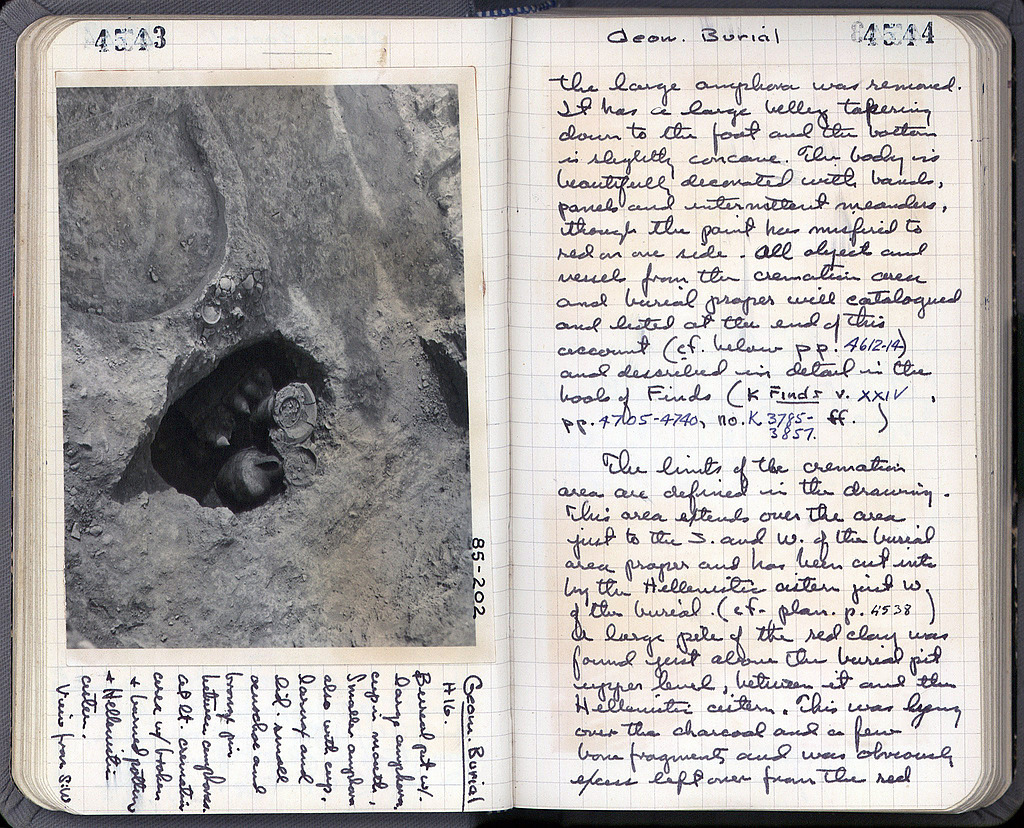 4543
85-202
Geom. Burial
H 16.
Burial pit w.
large amphora,
cup in mouth,
smaller amphora
also with cup,
larnax and
lid. small
oenochoe and
bronze pin
between amphorae
at lt. cremation
area w/ broken
+ burned pottery
+ Hellenistic
cistern.
View from SW
4544
Geom. Burial
the large amphora was removed.
It has a large belley tapering
down to the foot and the bottom
is slightly concave. The body is
beautifully decorated with bands,
panels and intermittent meanders,
though the paint has misfired to
red on one side. All object and
vessels from the cremation area
and burial proper will catalogued
and listed at the end of this
account (cf. below pp. 4612-14)
and described in detail in the
book of Finds (K Finds v. XXIV,
pp. 4705-4740, no. K 3785- ff.)
3857.
The limits of the cremation
area are defined in the drawing.
This area extends over the area
just to the S. and W. of the burial
area proper and has been cut into
by the Hellenistic cistern just W.
of the burial. (cf. plan. p. 4538)
A large pile of the red clay was
found just above the burial pit
upper level, between it and the
Hellenistic cistern. This was lying
over the charcoal and a few
bone fragments and was obviously
excess left over from the red